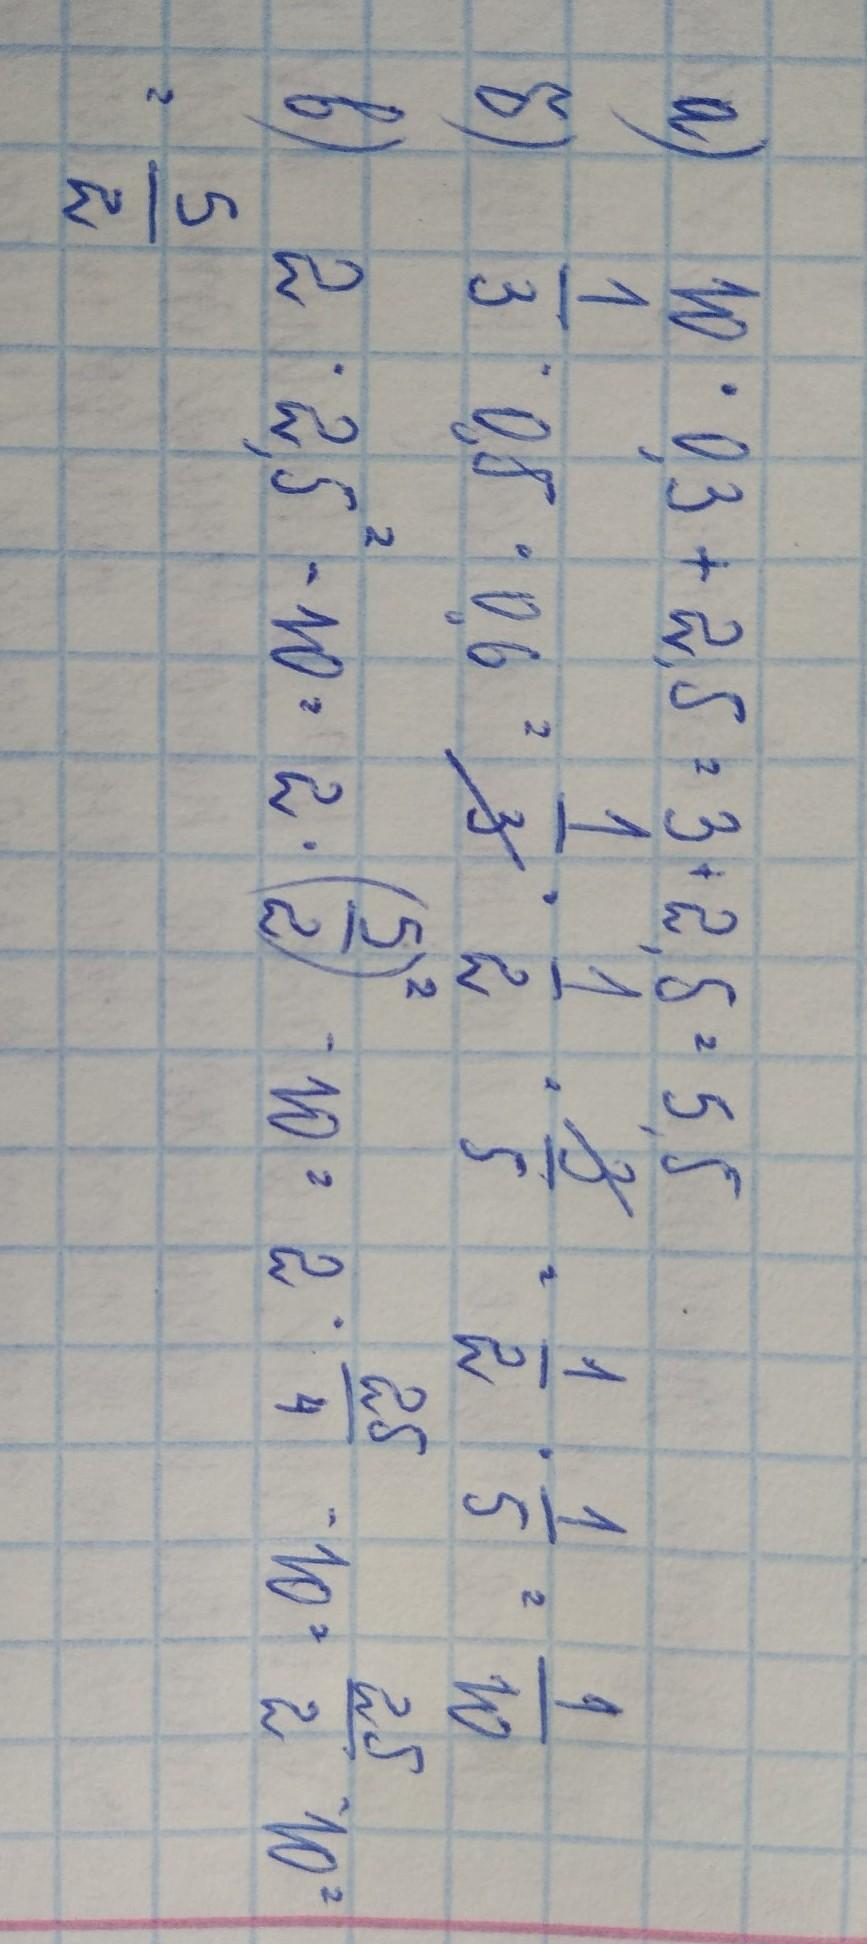 а) 10 · 0,3 + 2,5 = 3 + 2,5 = 5,5
б) 1/3 · 0,5 · 0,6 = 1/3 · 1/2 · 3/5 = 1/2 · 1/5 = 1/10
в) 2 · 2,5² - 10 = 2 · (5/2)² - 10 = 2 · 25/4 - 10 = 25/2 - 10 =
= 5/2